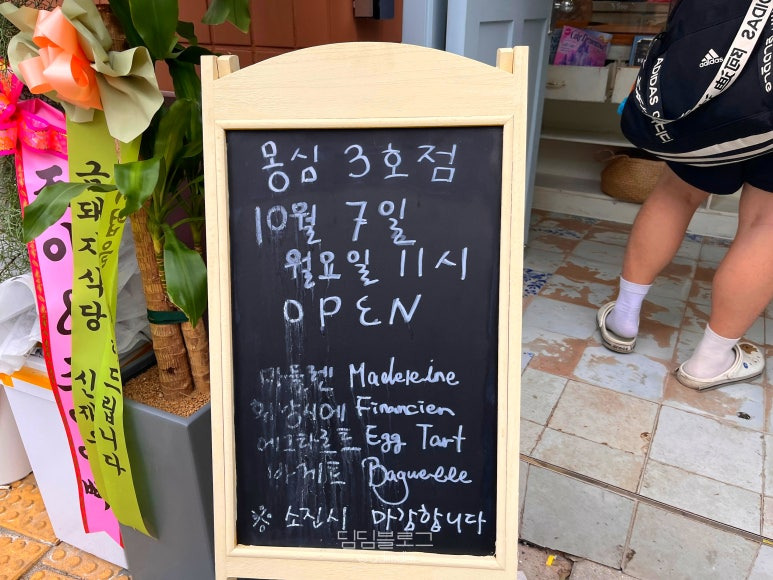 몽심 3호점
10월 7일
월요일 11시
OPEN
마들렌 Madeleine
휘낭시에 Financier
에그타르트 Egg Tart
바게트 Baguette
※ 소진시 마감합니다
딤딤블로그
금돼지식당
adidas
ADIDAS